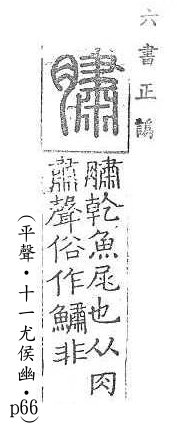 六書正譌
䐹
䐹乾魚尾也从肉
肅聲俗作鱐非
(平聲・十一尤侯幽・p66)